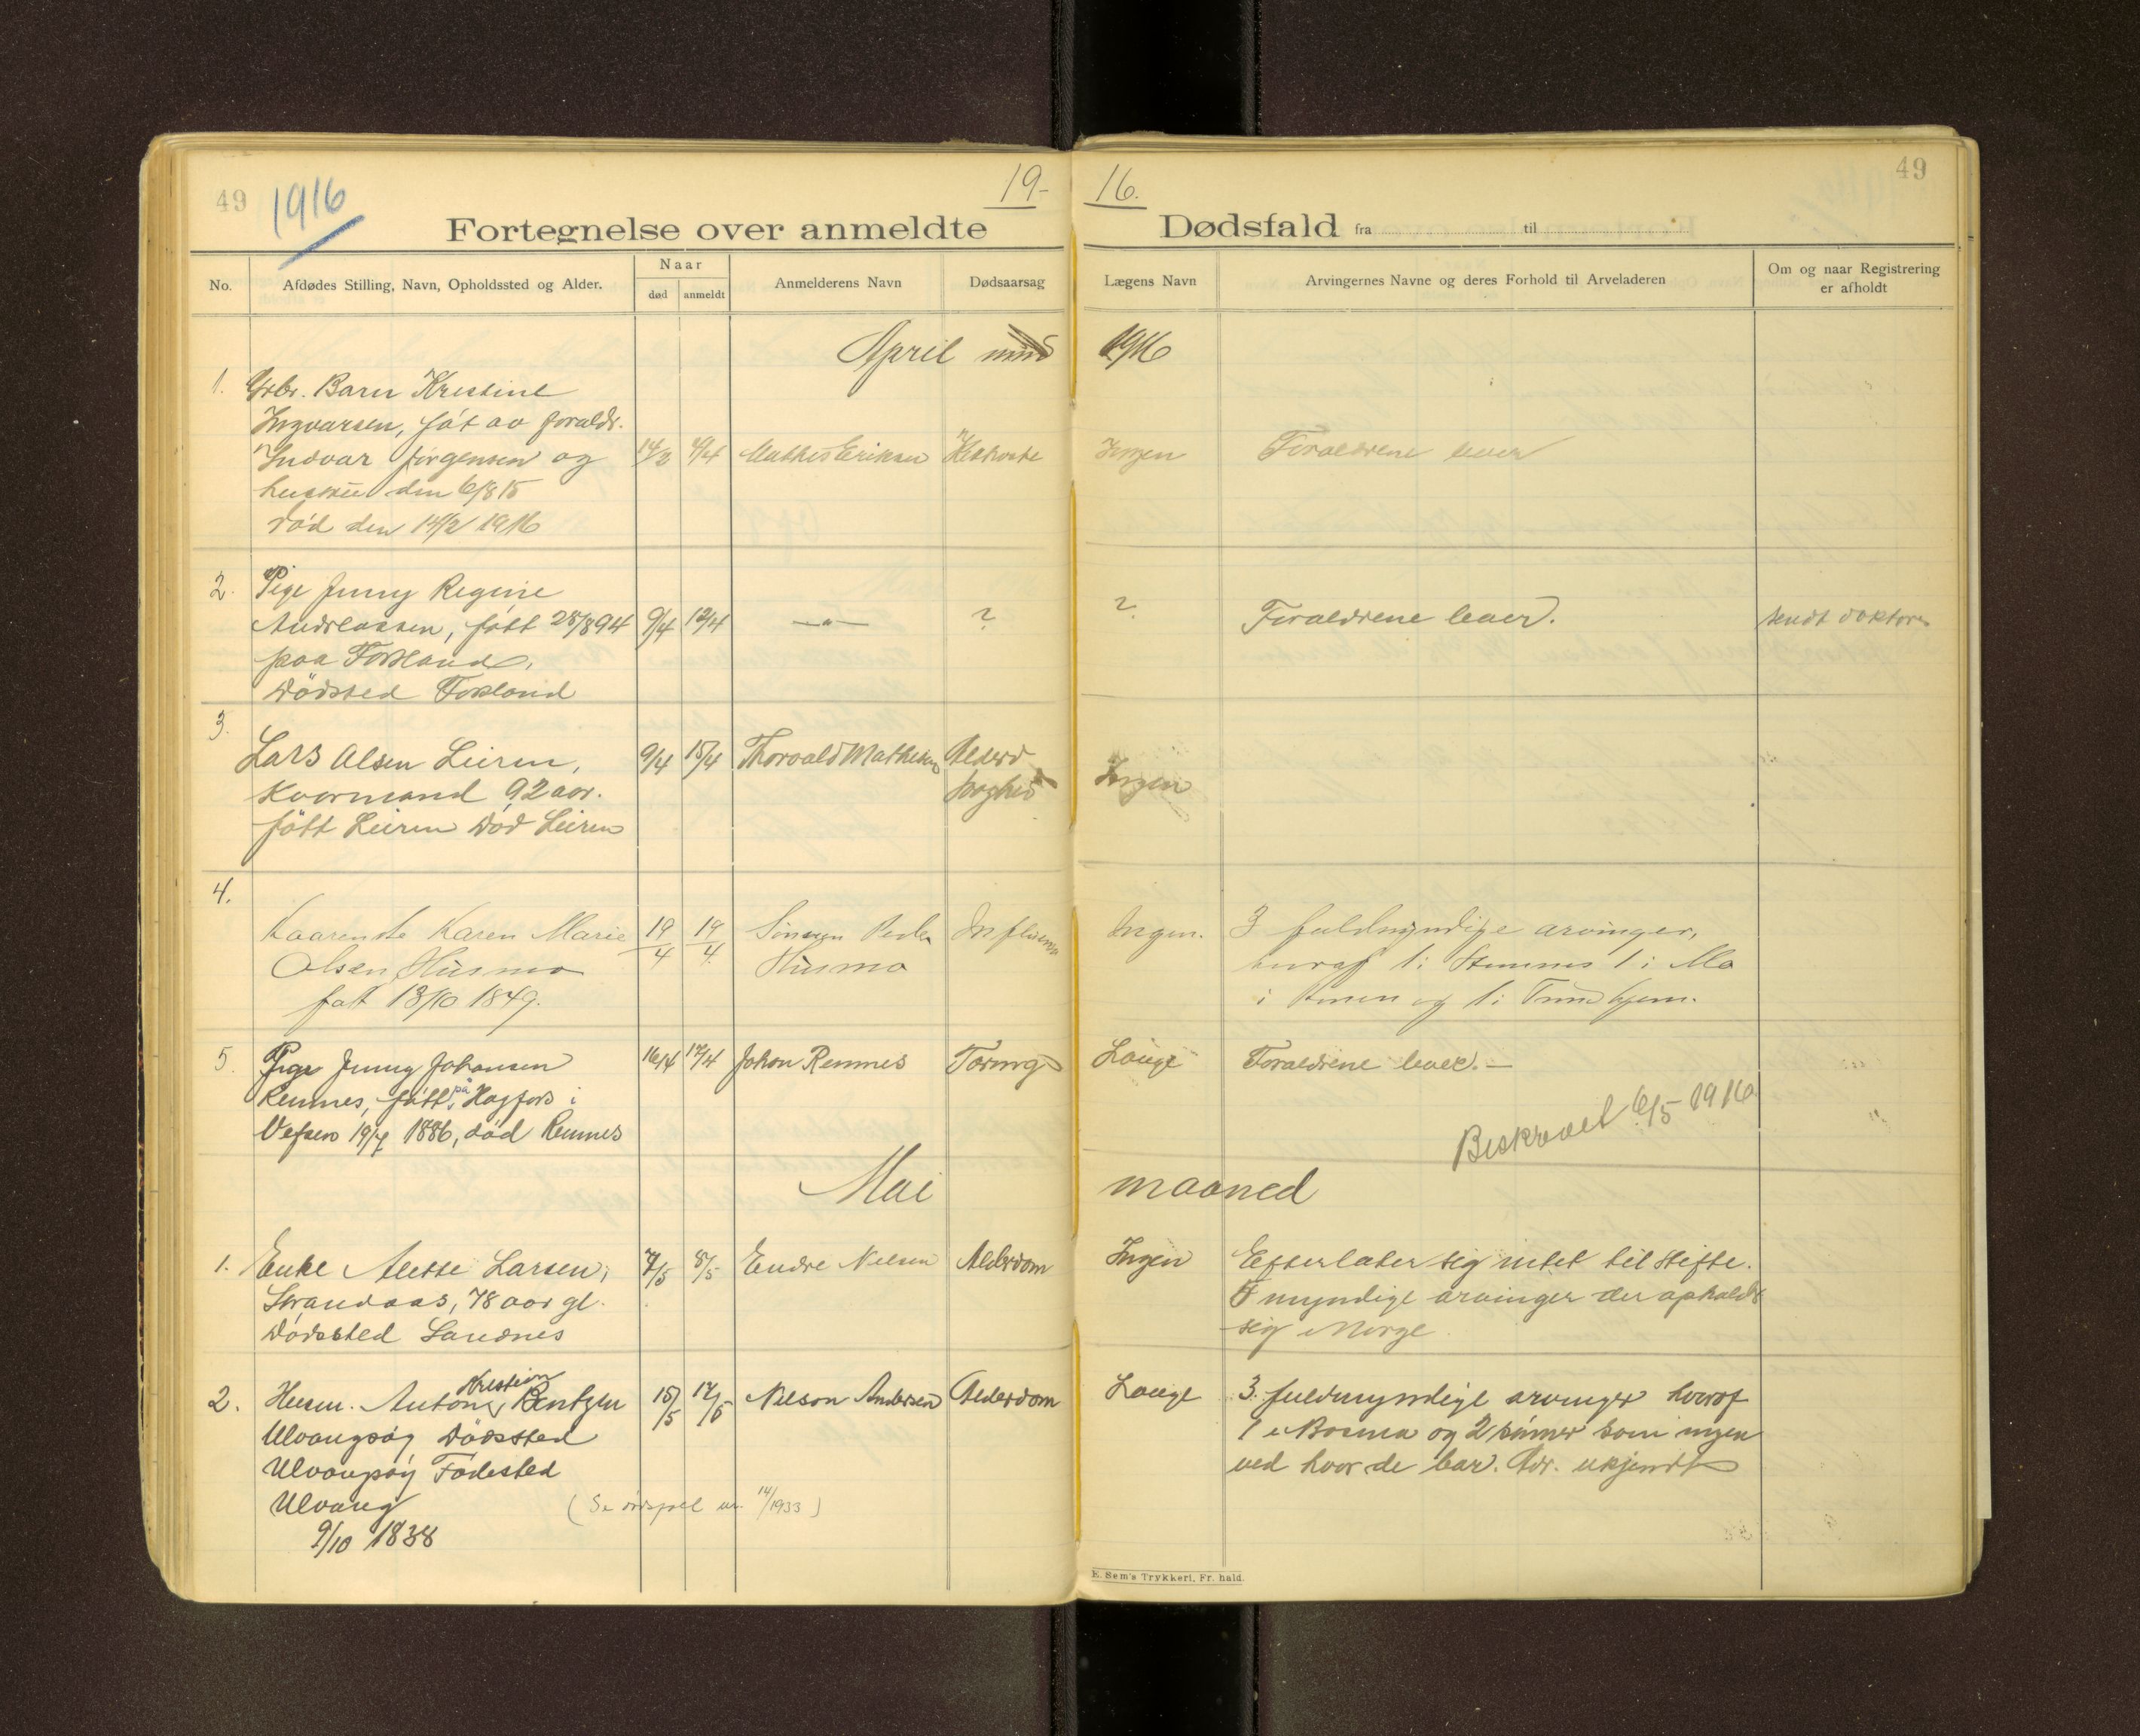 49
1916
19-
16.
49
Fortegnelse over anmeldte
Dødsfald fra til
No.
Afdødes Stilling, Navn, Opholdssted og Alder.
Naar
død
anmeldt
Anmelderens Navn
Dødsaarsag
Lægens Navn
Arvingernes Navne og deres Forhold til Arveladeren
Om og naar Registrering
er afholdt
April
1916
1. Barn Kristine
Ingvarsen, føt av foraldr.
Indvar Jørgensen og
hustru den 6/8 15
død den 14/2 1916
14/2
Mathis Eriksen
Kikhoste
Ingen
Foraldrene lever
2. Pige Jenny Regine
Andreassen, født 28/8 94
paa Forsland,
Dödsted Forsland
9/4
12/4
—„—
?
?
Foraldrene lever.
sendt doktoren
3.
Lars Olsen Leiren,
Kaarmand 92 aar.
født Leiren død Leiren
9/4
15/4
Thorvald Mathisen
Alderd
Ingen
4.
Kaarenke Karen Marie
Olsen Husmo
født 13/10 1849.
19/4
19/4
Simsen Peder
Husmo
Influensa
Ingen.
3 fuldmyndige arvinger,
hvoraf 1 i Stamnes 1 i Mo
i Ranen og 1 i Trondhjem.
5. Pige Jenny Johansen
Remnes, født på Hagfors i
Vefsen 19/7 1886, død Remnes
16/4
17/4
Johan Remnes
Tæring
Lauge
Foraldrene lever.—
Beskrevet 6/5 1916
Mai
maaned
1. Enke Alette Larsen,
Strandaas, 78 aar gl.
Dødssted Sandnes
7/5
8/5
Endre Nilsen
Alderdom
Ingen
Efterlater sig intet til skifte.
5 myndige arvinger der opholdr
sig i Norge
2. Husm. Anton Kristian Bentzen
Ulvangsøy Dødssted
Ulvangsøy Fødested
Ulvang
9/10 1838
15/5
17/5
Nilson Andersen
Alderdom
Lauge
3 fuldmyndige arvinger hvoraf
1 i Bosmo og 2 sønner som ingen
ved hvor de bor. Adr. ukjendt
(Se dødsfall nr. 14/1933)
E. Sem's Trykkeri, Fr. hald.